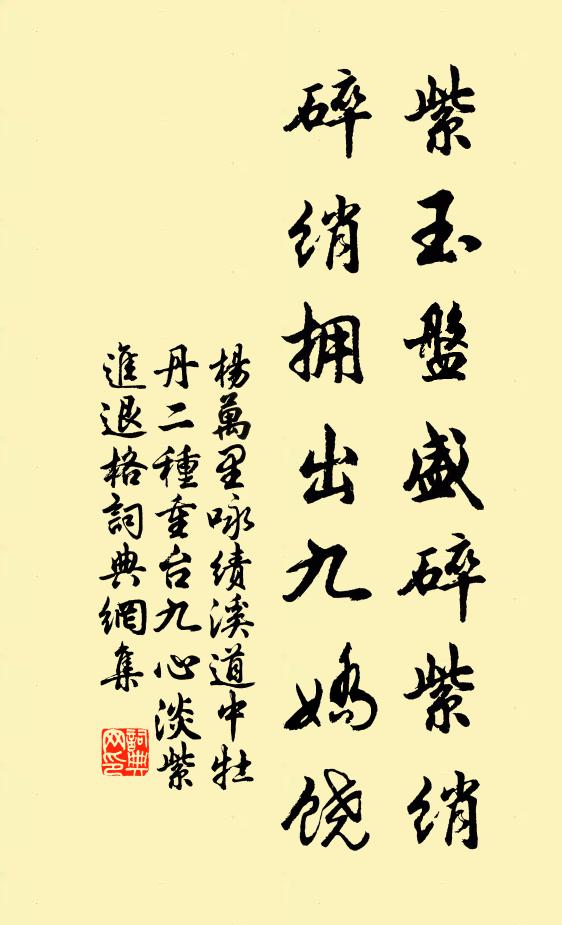 紫玉盤盛碎紫綃
碎綃拥出九嬌饶
楊萬里咏績溪道中牡
丹二種重台九心淡紫
進退格詞典網集
詞典
网印